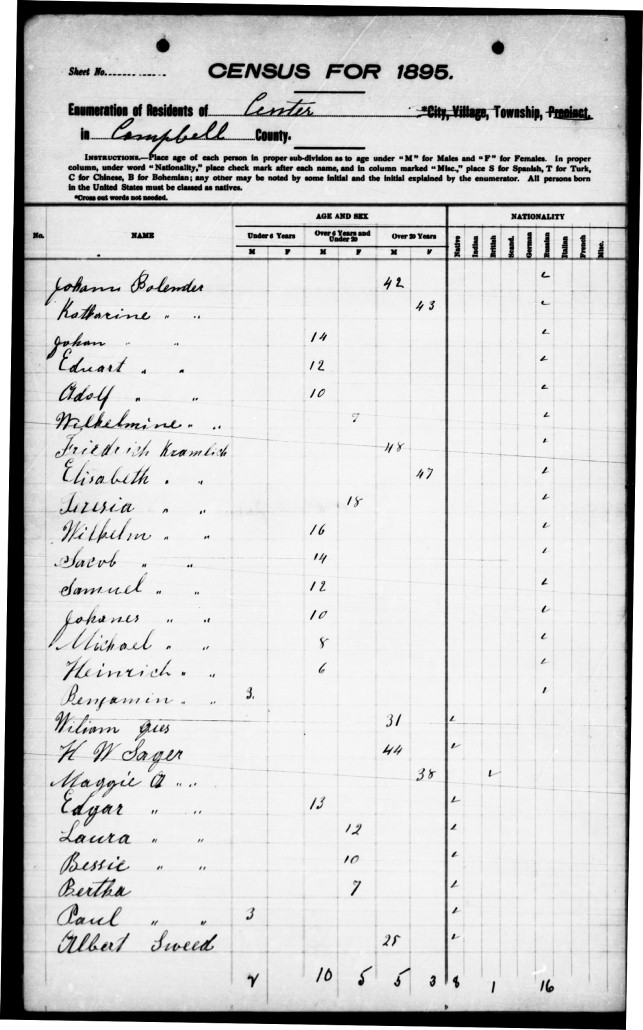 Sheet No.
CENSUS FOR 1895.
Enumeration of Residents of Center *City, Village, Township, Precinct,
in Campbell County.
INSTRUCTIONS.—Place age of each person in proper sub-division as to age under "M" for Males and "F" for Females. In proper
column, under word "Nationality," place check mark after each name, and in column marked "Misc.," place S for Spanish, T for Turk,
C for Chinese, B for Bohemian; any other may be noted by some initial and the initial explained by the enumerator. All persons born
in the United States must be classed as natives.
*Cross out words not needed.
AGE AND SEX NATIONALITY
No. NAME Under 6 Years Over 6 Years and Under 20 Over 20 Years Native Indian British Scand. German Russian Italian French Misc.
M F M F M F
Johann Bolender 42 ✓
Katharine " " 43 ✓
Johan " " 14 ✓
Eduart " " 12 ✓
Adolf " " 10 ✓
Wilhelmine " " 7 ✓
Friedrich Kramlich 48 ✓
Elisabeth " " 47 ✓
Teresia " " 18 ✓
Wilhelm " " 16 ✓
Jacob " " 14 ✓
Samuel " " 12 ✓
Johanes " " 10 ✓
Michael " " 8 ✓
Heinrich " " 6 ✓
Benjamin " " 3. ✓
Wiliam Gies 31 ✓
H W Sager 44 ✓
Maggie A " " 38 ✓
Edgar " " 13 ✓
Laura " " 12 ✓
Bessie " " 10 ✓
Bertha 7 ✓
Paul " " 3 ✓
Albert Sweed 28 ✓
2 10 5 5 3 8 1 16